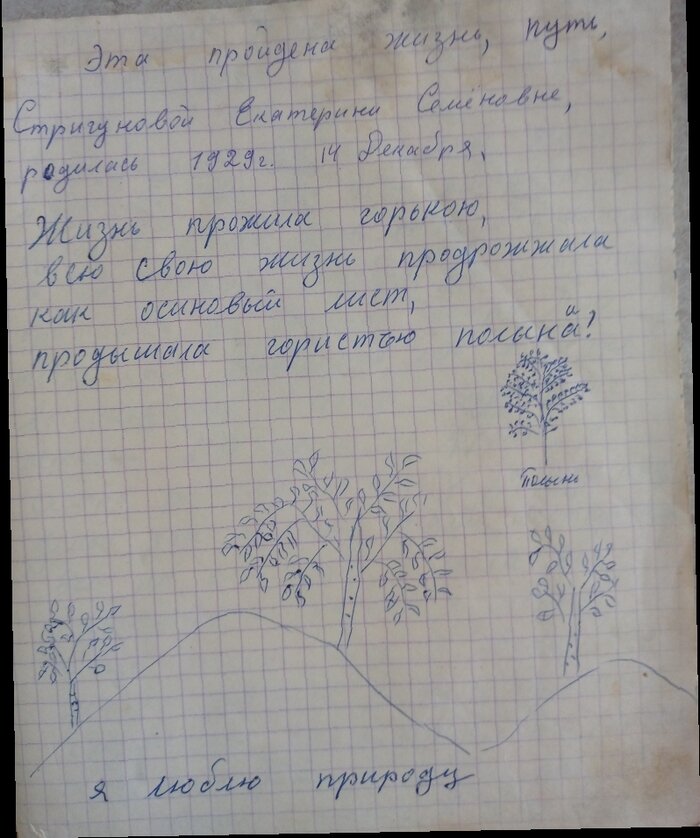 Эта пройдена жизнь, путь,
Стригуновой Екатерини Семёновне,
родилась 1929г. 14 Декабря.
Жизнь прожила горькою,
всю свою жизнь продрожжала
как осиновый лист,
продышала гористью полына!
а
Полынь
я люблю природу